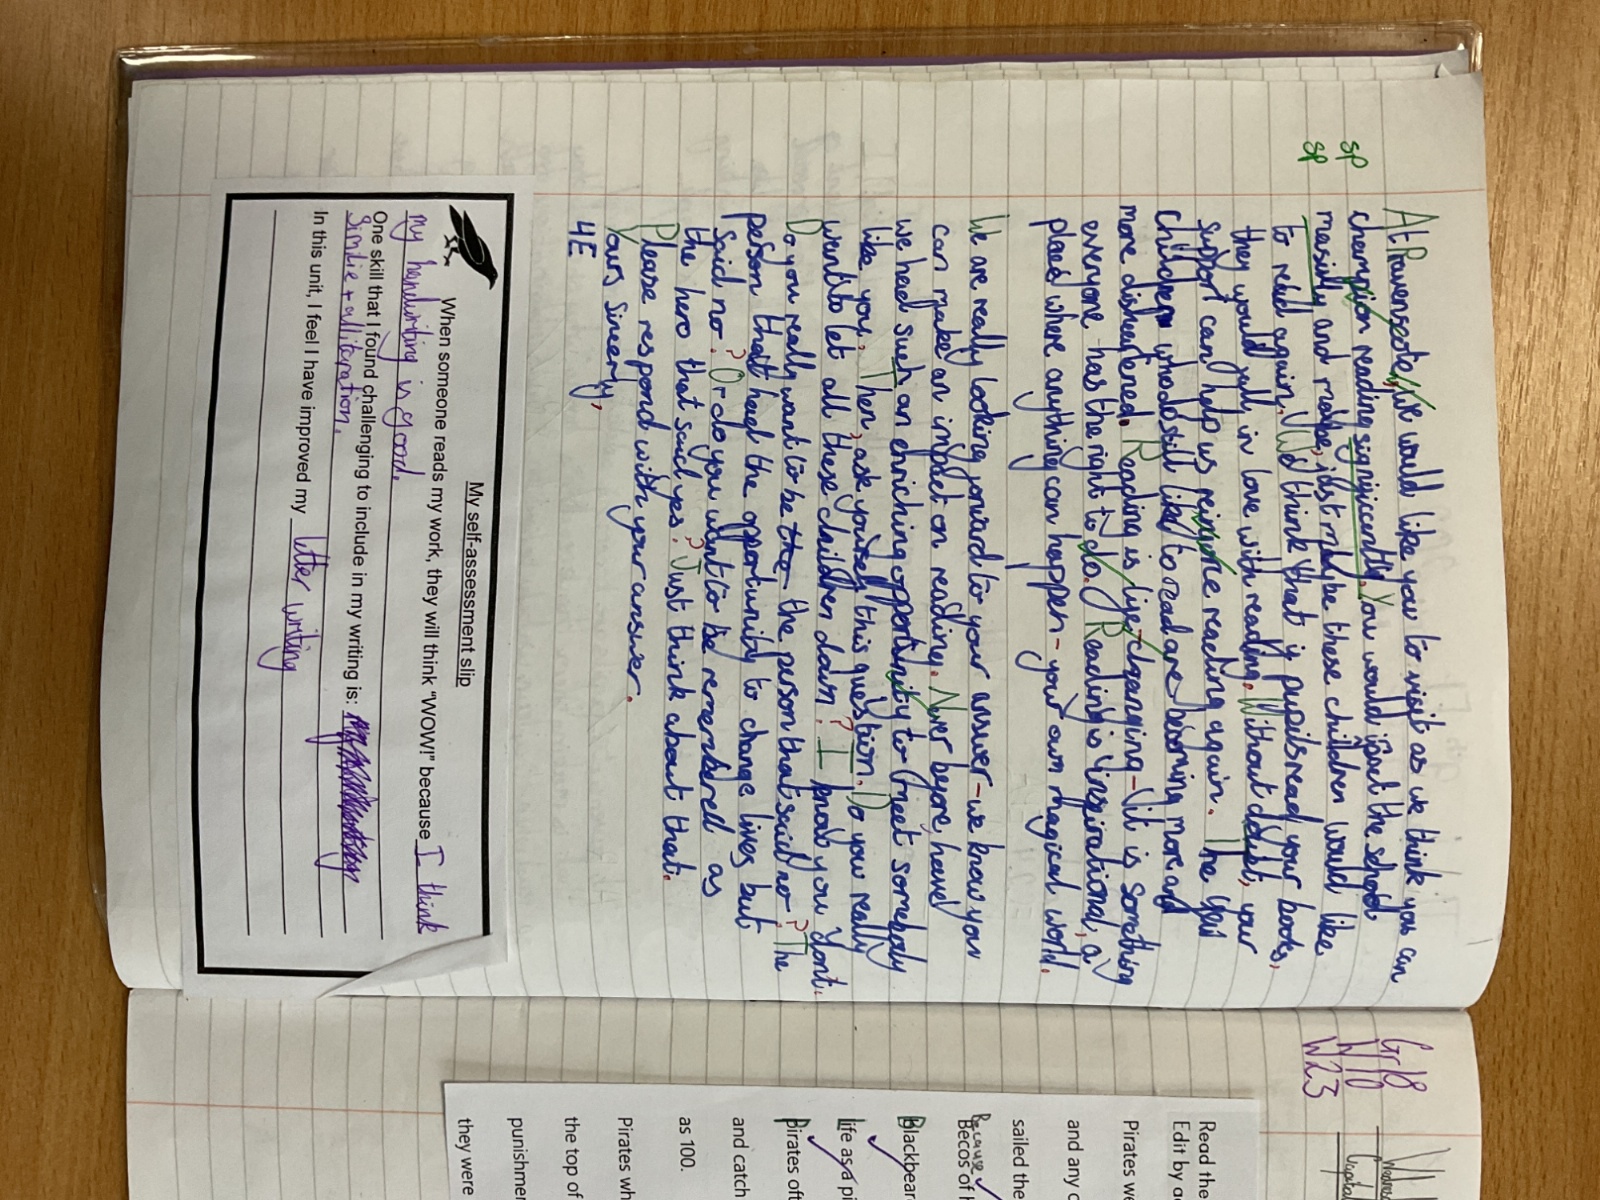 At Ravenscote, we would like you to visit as we think you can
champion reading significantly. You would input the school
massivly and maybe, just maybe these children would like
to read again. We think that if pupils read your books,
they would fall in love with reading. Without doubt, your
support can help us reignite reading again. The
children who do still like to read are becoming more and
more disheartened. Reading is life-changing - it is something
everyone has the right to do. Reading is inspirational, a
place where anything can happen - your own magical world.
We are really looking forward to your answer - we know you
can make an impact on reading. Never before, have
we had such an enriching opportunity to meet somebody
like you. Then, ask yourself this question. Do you really
want to let all these children down? I know you don't.
Do you really want to be the the person that said no? The
person that had the opportunity to change lives but
said no? Or do you want to be remembered as
the hero that said yes? Just think about that.
Please respond with your answer.
Yours sincerly,
4E
sp
sp
My self-assessment slip
When someone reads my work, they will think "WOW!" because I think
my handwriting is good.
One skill that I found challenging to include in my writing is:
Simile + alliteration.
In this unit, I feel I have improved my letter writing
Gr18
W10
W23
Read the
Edit by
Pirates we
and any
sailed the
Because
Becos of
Blackbear
Life as a pi
Pirates oft
and catch
as 100.
Pirates wh
the top of
punishmen
they were